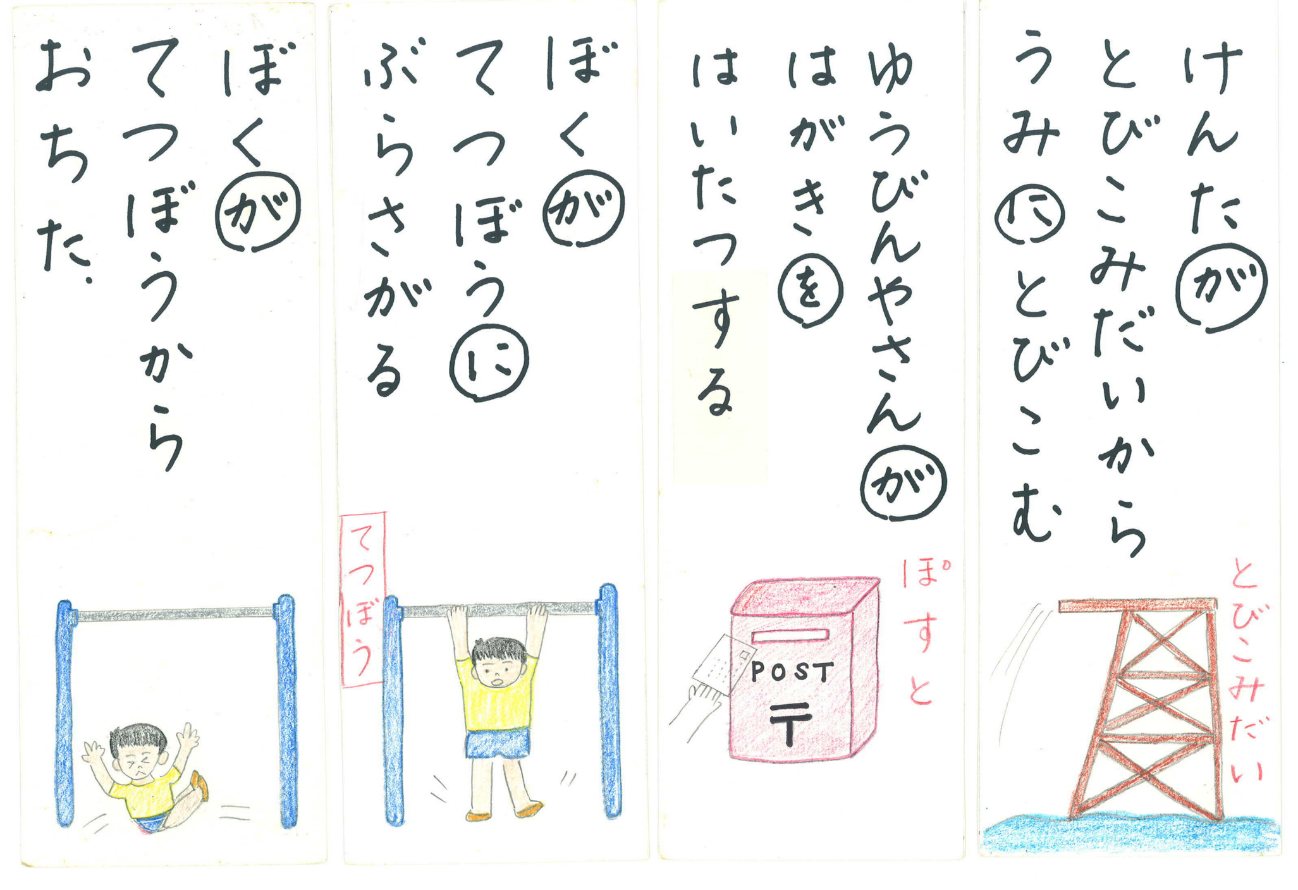 けんたが
とびこみだいから
うみにとびこむ
とびこみだい
ゆうびんやさんが
はがきを
はいたつする
ぽすと
POST
〒
ぼくが
てつぼうに
ぶらさがる
てつぼう
ぼくが
てつぼうから
おちた.